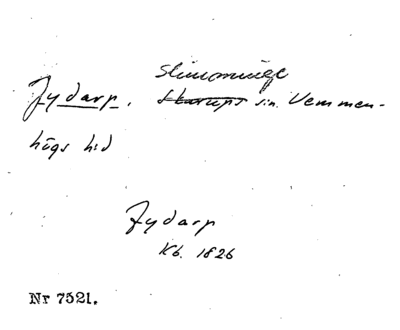 Slimminge
Jydarp. Skurups sn. Vemmen-
högs hd
Jydarp
Kb. 1826
Nr 7521.